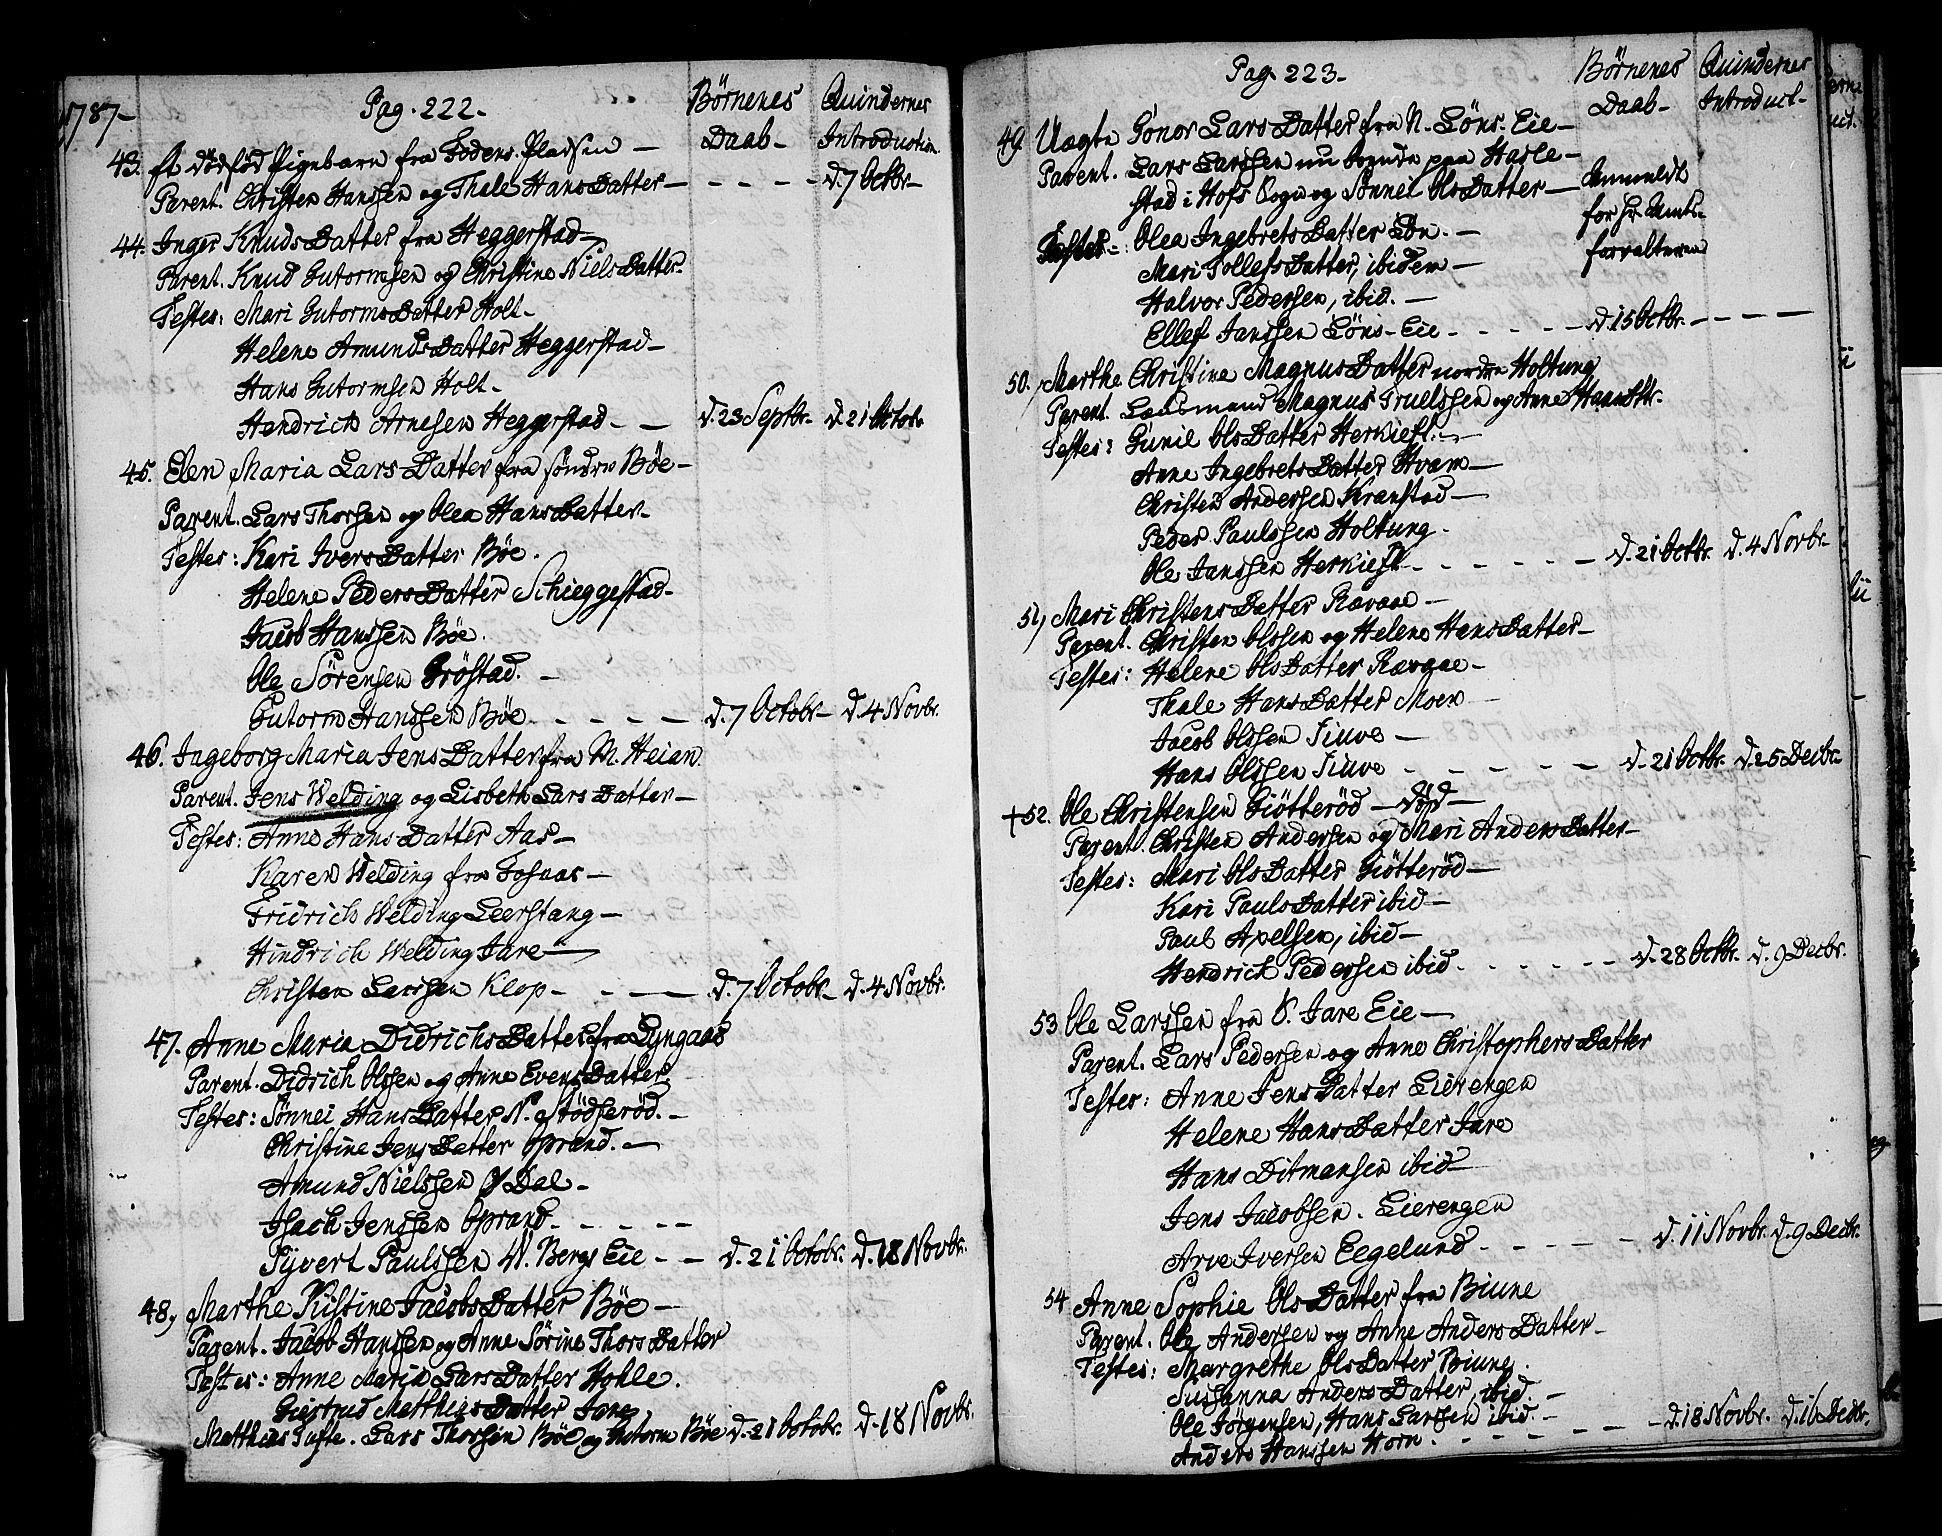 1787-
Pag. 222.-
Börnenes Daab-
Quindernes Introduction.
43. et dödfød Pigebarn fra Fodens Pladsen -
Parent. Christen Hanssen og Thale HansDatter - - - - - d. 7 Octbr-
44. Inger KnudsDatter fra Heggerstad-
Parent. Knud Gutormsen og Christine NielsDatter-
Testes: Mari GutormsDatter Holt-
Helene AmundsDatter Heggerstad-
Hans Gutormsen Holt-
Hendrich Arnesen Heggerstad - - d. 23 Septbr.- d. 21 Octobr
45. Elen Maria LarsDatter fra söndre Böe-
Parent. Lars Thorsen og Olea HansDatter-
Testes: Kari IversDatter Böe.
Helene PedersDatter Schieggestad-
Jacob Hanssen Böe.
Ole Sörensen Gröstad. -
Gutorm Hanssen Böe. - - - - d. 7 Octobr- d. 4 Novbr.
46. Ingeborg Maria JensDatter fra M. Heian
Parent. Jens Welding og Lisbeth LarsDatter-
Testes: Anne HansDatter Aas-
Karen Welding fra Fosnas-
Fridrich Welding Leerstang-
Hindrich Welding Jare-
Christen Larssen Klop- - - d. 7 Octobr- d. 4 Novbr.
47. Anne Maria DidrichsDatter fra Lyngaas
Parent. Didrich Olssen og Anne EvensDatter
Testes: Sönnei HansDatter N. Stödseröd. -
Christine JensDatter Oprand. -
Amund Nielssen Ø Dal-
Isach Jenssen Oprand. - - - -
Syvert Paulssen W. Bergs Eie - - d. 21 Octobr. d. 18 Novbr.
48, Marthe Kistine JacobsDatter Böe -
Parent. Jacob Hanssen og Anne Sörine ThorsDatter
Testes: Anne Maria LarsDatter Hohle.
Giertrud MatthiesDatter Jare,
Matthies Tufte. Lars Thorsen Böe og Gutorm Böe d. 21 Octobr. d. 18 Novbr.
Pag. 223.-
Börnenes Daab-
Quindernes Introduct-
49. Uægte Gonor LarsDatter fra N. Löns-Eie-
Parent. Lars Larssen nu boende paa Hasle-
stad i Hofs Sogn og Sönnei OlsDatter- Anmeldt
for Hr. Amts-
forvalteren
Testes-: Olea IngebretsDatter Lön. -
Mari TollefsDatter, ibidem -
Halvor Pedersen, ibid. -
Ellef Janssen Löns-Eie - - - - d. 15 Octbr. - - - -
50. Marthe Christine MagnusDatter nordre Holtung
Parent. Landsmand Magnus Truelssen og Anne HansDtr.
Testes: Gunil OlsDatter Herkiest. -
Anne IngebretsDatter Hvam-
Christen Andersen Kranstad-
Peder Paulssen Holtung.
Ole Janssen Herkiest - - - - - d. 21 Octbr. d. 4 Novbr-
51, Mari ChristensDatter Ravaae -
Parent. Christen Olssen og Helene HansDatter-
Testes: Helene OlsDatter Ravaae -
Thale HansDatter Moen -
Jacob Olssen Tiuve -
Hans Olssen Tiuve - - - - - d. 21 Octbr. d. 26 Decbr.
+52. Ole Christensen Giötteröd - död -
Parent. Christen Andersen og Mari AndersDatter-
Testes: Mari OlsDatter Giötteröd-
Kari PaulsDatter ibid-
Paul Axelsen, ibid-
Hendrich Pedersen ibid. - - - - - d. 28 Octbr. d. 9 Decbr.
53 Ole Larssen fra V. Jare Eie -
Parent. Lars Pedersen og Anne ChristophersDatter
Testes: Anne JensDatter Lierengen
Helene HansDatter Jare
Hans Ditmansen ibid
Jens Jacobsen. Lierengen
Arve Iversen Eegelund - - - - - d. 11 Novbr. d. 9 Decbr.
54 Anne Sophie OlsDatter fra Biune
Parent. Ole Andersen og Anne AndersDatter-
Testes: Margrethe OlsDatter Biune.
Susanna AndersDatter, ibid. -
Ole Jörgensen, Hans Larssen ibid. - d. 18 Novbr. d. 16 Decbr.
Anders Hanssen Horn. - - - - -